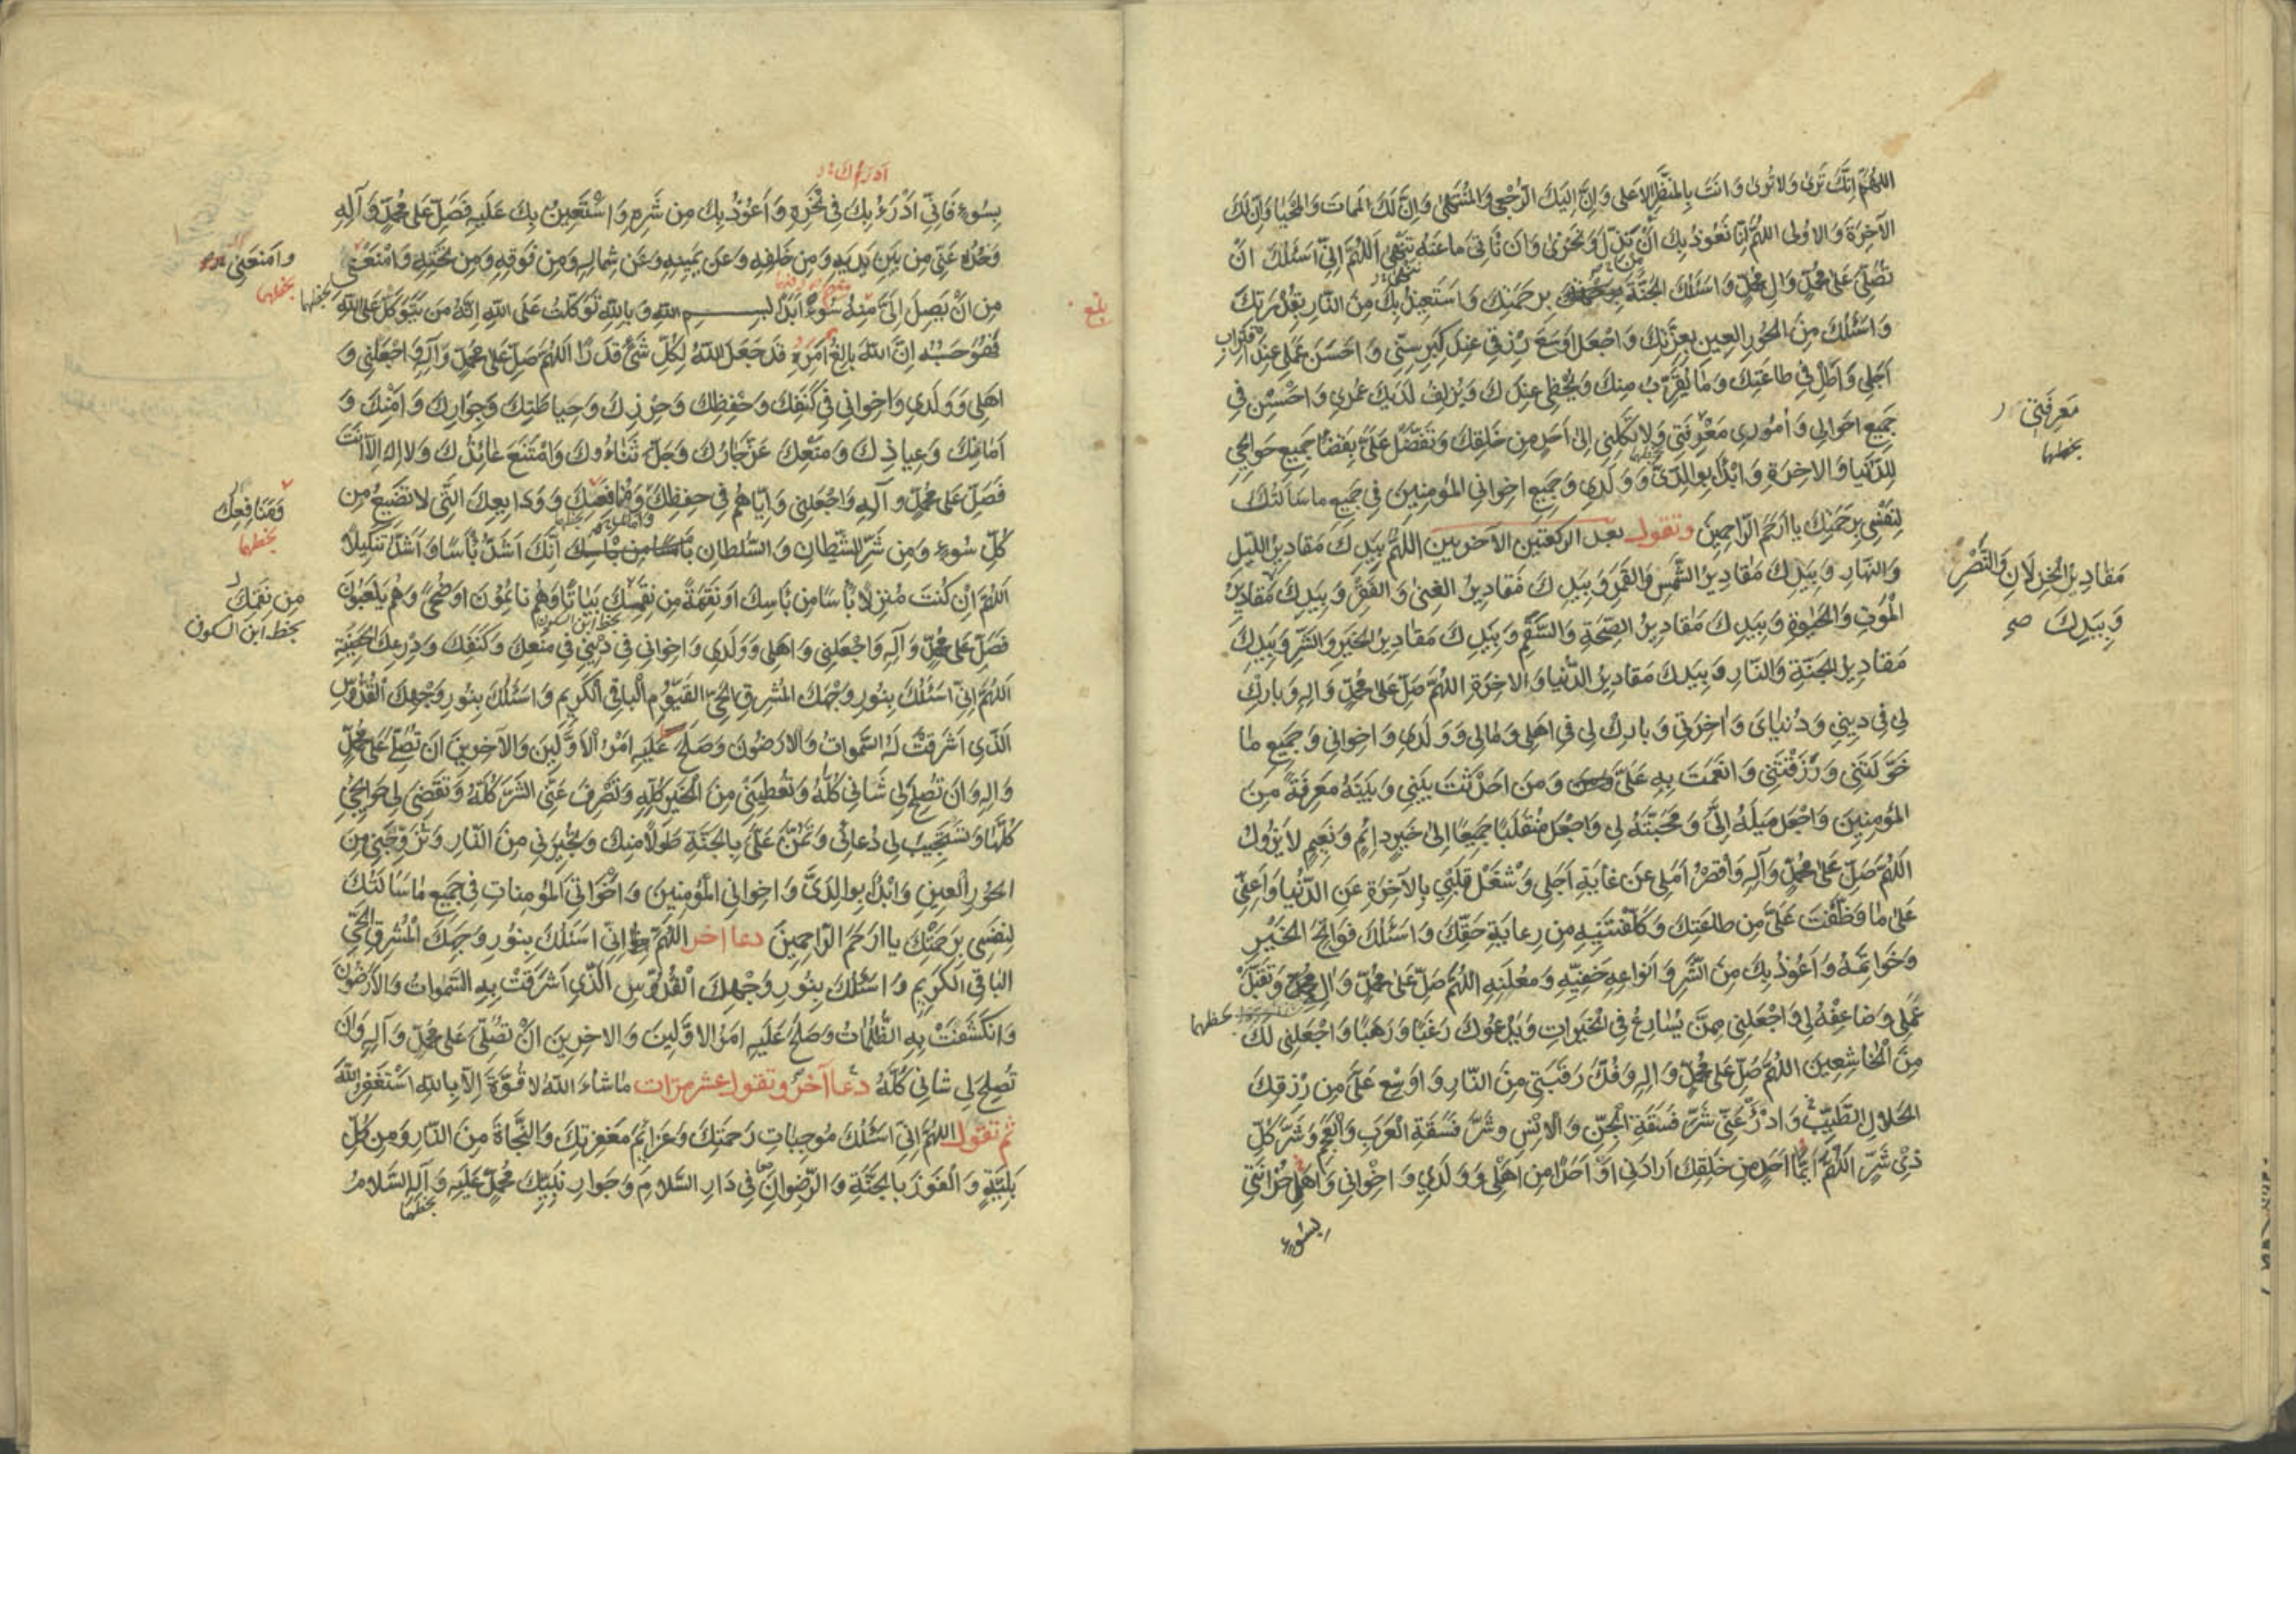 اللهُمَّ اِنَّكَ تَرى وَلا تُرى وَاَنتَ بِالمَنظَرِ الاَعلى وَاِنَّ اِلَيكَ الرُّجعى وَالمُنتَهى وَاِنَّ لَكَ المَماتَ وَالمَحيا وَاِنَّ لَكَ
الآخِرَةَ وَالاُولى اللهُمَّ اِنّا نَعُوذُ بِكَ اَنْ نَذِلَّ وَنَخزى وَاَن نَأتِيَ ما عَنهُ تَنهى اَللهُمَّ اِنّي اَسئَلُكَ اَنْ
تُصَلِّيَ عَلى مُحَمَّدٍ وَالِ مُحَمَّدٍ وَاَسئَلُكَ الجَنَّةَ بِرَحمَتِكَ وَاَستَعيذُ بِكَ مِنَ النّارِ بِقُدرَتِكَ
وَاَسئَلُكَ مِنَ الحُورِ العينِ بِعِزَّتِكَ وَاجعَل اَوسَعَ رِزقي عِندَ كِبَرِ سِنّي وَاَحسَنَ عَمَلي عِندَ اقتِرابِ
اَجَلي وَاَطِل في طاعَتِكَ وَما يُقَرِّبُ مِنكَ وَيُحظي عِندَكَ وَيُزلِفُ لَدَيكَ عُمري وَاَحسِن في
جَميعِ اَحوالي وَاُموري مَعْرِفَتي وَلا تَكِلني اِلى اَحَدٍ مِن خَلقِكَ وَتَفَضَّل عَلَيَّ بِقَضاءِ جَميعِ حَوائِجي
لِلدُّنيا وَالاخِرَةِ وَابدَأ بِوالِدَيَّ وَوَلَدي وَجَميعِ اِخوانِي المُؤمِنينَ في جَميعِ ما سَاَلتُكَ
لِنَفسي بِرَحمَتِكَ يا اَرحَمَ الرّاحِمينَ وتقول بعد الركعتين الآخريين اللهُمَّ بِيَدِكَ مَقاديرُ اللَّيلِ
وَالنَّهارِ وَبِيَدِكَ مَقاديرُ الشَّمسِ وَالقَمَرِ وَبِيَدِكَ مَقاديرُ الغِنى وَالفَقرِ وَبِيَدِكَ مَقاديرُ
المَوتِ وَالحَيوةِ وَبِيَدِكَ مَقاديرُ الصِّحَّةِ وَالسَّقَمِ وَبِيَدِكَ مَقاديرُ الخَيرِ وَالشَّرِّ وَبِيَدِكَ
مَقاديرُ الجَنَّةِ وَالنّارِ وَبِيَدِكَ مَقاديرُ الدُّنيا وَالاخِرَةِ اللهُمَّ صَلِّ عَلى مُحَمَّدٍ وَالِهِ وَبارِك
لي في ديني وَدُنيايَ وَاخِرَتي وَبارِك لي في اَهلي وَمالي وَوَلَدي وَاِخواني وَجَميعِ ما
خَوَّلتَني وَرَزَقتَني وَاَنعَمتَ بِهِ عَلَيَّ وَمَن اَحدَثتَ بَيني وَبَينَهُ مَعرِفَةً مِنَ
المُؤمِنينَ وَاجعَل مَيلَهُ اِلَيَّ وَمَحَبَّتَهُ لي وَاجعَل مُنقَلَبَنا جَميعًا اِلى خَيرٍ دائِمٍ وَنَعيمٍ لا يَزُولُ
اَللهُمَّ صَلِّ عَلى مُحَمَّدٍ وَآلِهِ وَاَقصِرْ اَمَلي عَن غايَةِ اَجَلي وَاشغَلْ قَلبي بِالآخِرَةِ عَنِ الدُّنيا وَاَعِنّي
عَلى ما وَظَّفتَ عَلَيَّ مِن طاعَتِكَ وَكَلَّفتَنيهِ مِن رِعايَةِ حَقِّكَ وَاَسئَلُكَ فَواتِحَ الخَيْرِ
وَخَواتِمَهُ وَاَعُوذُ بِكَ مِنَ الشَّرِّ وَاَنواعِهِ خَفِيِّهِ وَمُعلَنِهِ اللهُمَّ صَلِّ عَلى مُحَمَّدٍ وَالِ مُحَمَّدٍ وَتَقَبَّلْ
عَمَلي وَضاعِفهُ لي وَاجعَلني مِمَّن يُسارِعُ فِي الخَيراتِ وَيَدعُوكَ رَغَبًا وَرَهَبًا وَاجعَلني لَكَ
مِنَ الخاشِعينَ اللهُمَّ صَلِّ عَلى مُحَمَّدٍ وَالِهِ وَفُكَّ رَقَبَتي مِنَ النّارِ وَاَوسِع عَلَيَّ مِن رِزقِكَ
الحَلالِ الطَّيِّبِ وَادْرَأ عَنّي شَرَّ فَسَقَةِ الجِنِّ وَالاِنسِ وَشَرَّ فَسَقَةِ العَرَبِ وَالعَجَمِ وَشَرَّ كُلِّ
ذي شَرٍّ اَللهُمَّ اَيُّما اَحَدٍ مِن خَلقِكَ اَرادَني اَو اَحَدًا مِن اَهلي وَوَلَدي وَاِخواني وَاَهلِ حُزانَتي
بسوء
مَعرِفَتي
بخطهما
مَقاديرُ الخِذلانِ وَالنَّصْرِ
وَبِيَدِكَ صح
بخطهما
ادرأك
بِسُوءٍ فَاِنّي اَدْرَءُ بِكَ في نَحْرِهِ وَاَعُوذُ بِكَ مِن شَرِّهِ وَاَسْتَعينُ بِكَ عَلَيهِ فَصَلِّ عَلى مُحَمَّدٍ وَآلِهِ
وَخُذهُ عَنّي مِن بَينِ يَدَيهِ وَمِن خَلفِهِ وَعَن يَمينِهِ وَعَن شِمالِهِ وَمِن فَوقِهِ وَمِن تَحتِهِ وَامْنَعْني
مِن اَنْ يَصِلَ اِلَيَّ مِنهُ سُوءٌ اَبَدًا بسم اللهِ وَبِاللهِ تَوَكَّلتُ عَلَى اللهِ اِنَّهُ مَن يَتَوَكَّل عَلَى اللهِ
فَهُوَ حَسبُهُ اِنَّ اللهَ بالِغُ اَمرِهِ قَد جَعَلَ اللهُ لِكُلِّ شَيءٍ قَدرًا اَللهُمَّ صَلِّ عَلى مُحَمَّدٍ وَآلِهِ وَاجعَلني وَ
اَهلي وَوَلَدي وَاِخواني في كَنَفِكَ وَحِفظِكَ وَحِرزِكَ وَحِياطَتِكَ وَجِوارِكَ وَاَمْنِكَ وَ
اَمانِكَ وَعِياذِكَ وَمَنعِكَ عَزَّ جارُكَ وَجَلَّ ثَناءُوكَ وَامْتَنَعَ عائِذُكَ وَلا اِلهَ اِلّا اَنتَ
فَصَلِّ عَلى مُحَمَّدٍ وَآلِهِ وَاجعَلني وَاِيّاهُم في حِفظِكَ وَمُدافَعَتِكَ وَوَدايِعِكَ الَّتي لا تَضيعُ مِن
كُلِّ سُوءٍ وَمِن شَرِّ الشَّيطانِ وَالسُّلطانِ اِنَّكَ اَشَدُّ بَأسًا وَاَشَدُّ تَنكيلًا
اَللهُمَّ اِن كُنتَ مُنزِلًا بَأسًا مِن بَأسِكَ اَو نَقِمَةً مِن نَقِمَتِكَ بَياتًا وَهُم نائِمُونَ اَو ضُحًى وَهُم يَلعَبُونَ
فَصَلِّ عَلى مُحَمَّدٍ وَآلِهِ وَاجعَلني وَاَهلي وَوَلَدي وَاِخواني في ديني في مَنعِكَ وَكَنَفِكَ وَدِرعِكَ الحَصينَةِ
اَللهُمَّ اِنّي اَسئَلُكَ بِنُورِ وَجهِكَ المُشرِقِ الحَيِّ القَيُّومِ الباقِي الكَريمِ وَاَسئَلُكَ بِنُورِ وَجهِكَ القُدُّوسِ
الَّذي اَشرَقَت لَهُ السَّمواتُ وَالاَرَضُونَ وَصَلَحَ عَلَيهِ اَمرُ الاَوَّلينَ وَالآخِرينَ اَن تُصَلِّيَ عَلى مُحَمَّدٍ
وَالِهِ وَاَن تُصلِحَ لي شَاني كُلَّهُ وَتُعطِيَني مِنَ الخَيرِ كُلِّهِ وَتَصرِفَ عَنِّي الشَّرَّ كُلَّهُ وَتَقضِيَ لي حَوائِجي
كُلَّها وَتَستَجيبَ لي دُعائي وَتَمُنَّ عَلَيَّ بِالجَنَّةِ طَولًا مِنكَ وَتُجيرَني مِنَ النّارِ وَتُزَوِّجَني مِنَ
الحُورِ العينِ وَابدَأ بِوالِدَيَّ وَاِخوانِي المُؤمِنينَ وَاَخَواتِيَ المُؤمِناتِ في جَميعِ ما سَاَلتُكَ
لِنَفسي بِرَحمَتِكَ يا اَرحَمَ الرّاحِمينَ دعا اخر اللهُمَّ اِنّي اَسئَلُكَ بِنُورِ وَجهِكَ المُشرِقِ الحَيِّ
الباقِي الكَريمِ وَاَسئَلُكَ بِنُورِ وَجهِكَ القُدُّوسِ الَّذي اَشرَقَتْ بِهِ السَّمواتُ وَالاَرَضُونَ
وَانكَشَفَتْ بِهِ الظُّلُماتُ وَصَلَحَ عَلَيهِ اَمرُ الاَوَّلينَ وَالاخِرينَ اَنْ تُصَلِّيَ عَلى مُحَمَّدٍ وَآلِهِ وَاَن
تُصلِحَ لي شاني كُلَّهُ دعا آخر وتقول عشر مرات ما شاءَ اللهُ لا قُوَّةَ اِلّا بِاللهِ اَستَغفِرُ اللهَ
ثم تقول اللهُمَّ اِنّي اَسئَلُكَ مُوجِباتِ رَحمَتِكَ وَعَزائِمَ مَغفِرَتِكَ وَالنَّجاةَ مِنَ النّارِ وَمِن كُلِّ
بَلِيَّةٍ وَالفَوزَ بِالجَنَّةِ وَالرِّضوانَ في دارِ السَّلامِ وَجِوارِ نَبِيِّكَ مُحَمَّدٍ عَلَيهِ وَآلِهِ السَّلامُ
بخطهما
بلغ
وامنَعني
بخطهما
بخطهما
بخطهما
مِن نِقَمِكَ
بخط ابن السكون